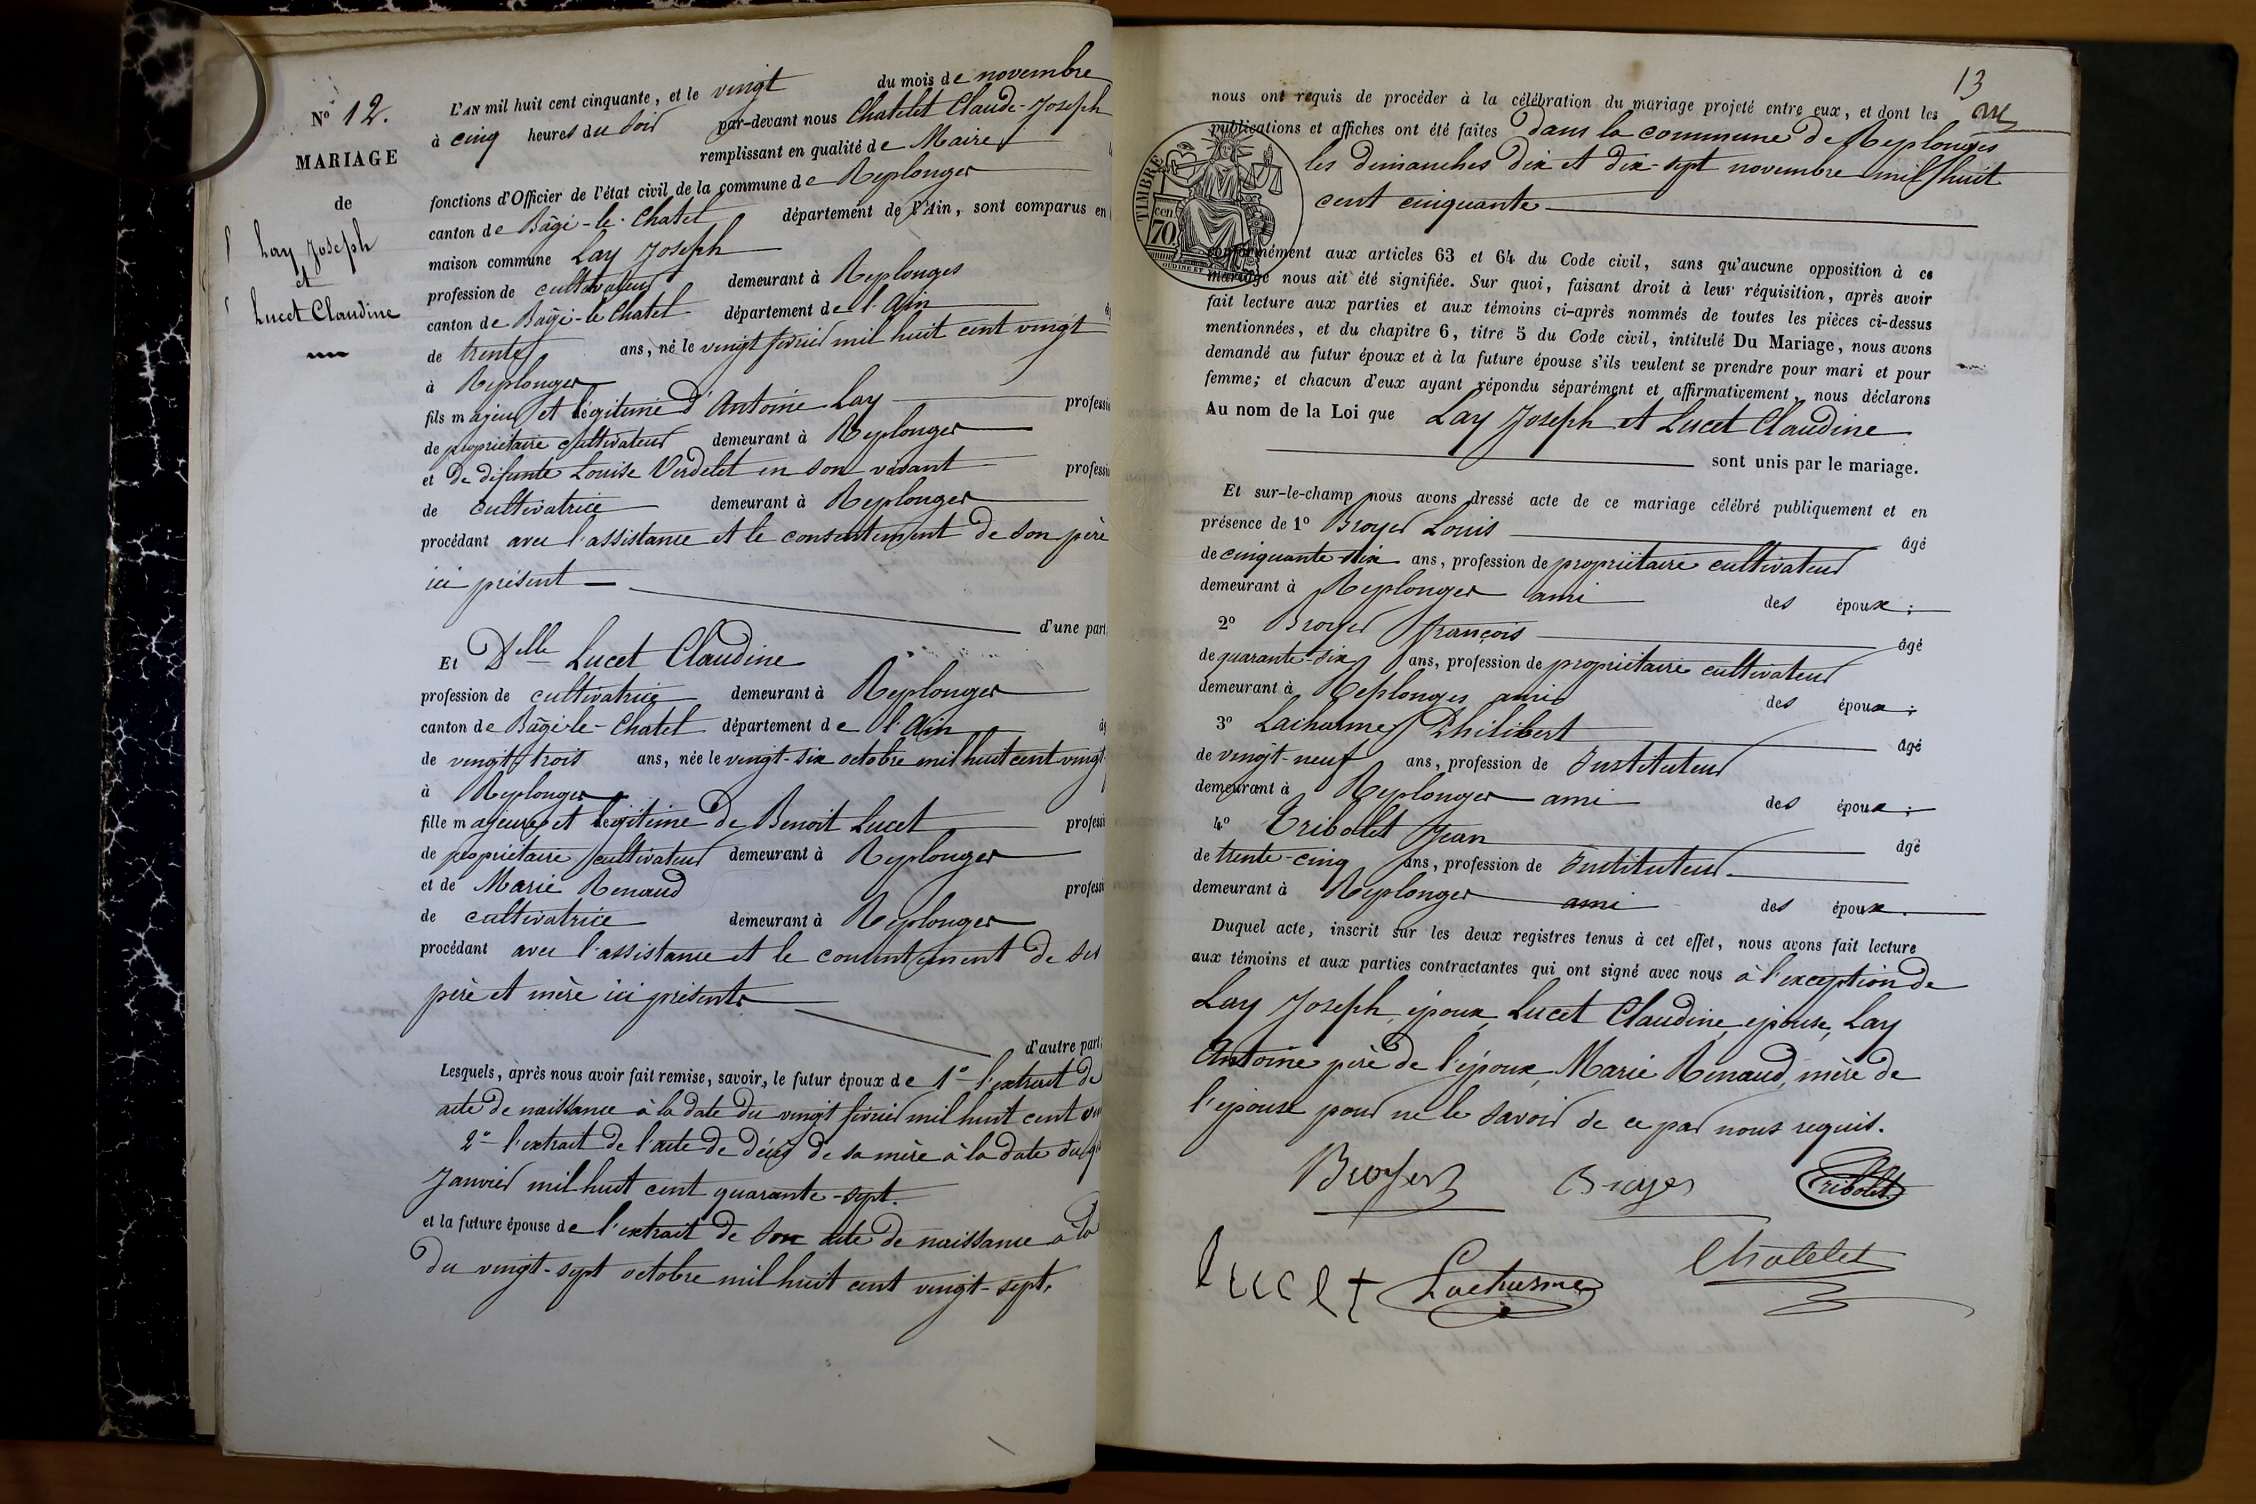 N° 12.
MARIAGE
de
Lay Joseph
et
Lucet Claudine
L'AN mil huit cent cinquante, et le vingt du mois de novembre
à cinq heures du soir par-devant nous Chatelet Claude-Joseph
remplissant en qualité de Maire
fonctions d'Officier de l'état civil de la commune de Replonges
canton de Bâgé-le-Chatel département de l'Ain, sont comparus en
maison commune Lay Joseph
profession de cultivateur demeurant à Replonges
canton de Bâgé-le Chatel département de l'Ain
de trente ans, né le vingt février mil huit cent vingt
à Replonges
fils majeur et légitime d'Antoine Lay professi
de propriétaire cultivateur demeurant à Replonges
et de défunte Louise Verdelet en son vivant professi
de cultivatrice demeurant à Replonges
procédant avec l'assistance et le consentement de son père
ici présent
d'une part
Et Delle Lucet Claudine
profession de cultivatrice demeurant à Replonges
canton de Bâgé-le-Chatel département de l'Ain
de vingt trois ans, née le vingt-six octobre mil huit cent vingt
à Replonges
fille majeure et légitime de Benoit Lucet professi
de propriétaire cultivateur demeurant à Replonges
et de Marie Renaud professi
de cultivatrice demeurant à Replonges
procédant avec l'assistance et le consentement de ses
père et mère ici présents
d'autre part,
Lesquels, après nous avoir fait remise, savoir, le futur époux de 1° l'extrait de
acte de naissance à la date du vingt février mil huit cent
2° l'extrait de l'acte de décès de sa mère à la date du
Janvier mil huit cent quarante-sept.
et la future épouse de l'extrait de son acte de naissance à la
du vingt-sept octobre mil huit cent vingt-sept.
13
nous ont requis de procéder à la célébration du mariage projeté entre eux, et dont les
publications et affiches ont été faites dans la commune de Replonges
les dimanches dix et dix-sept novembre mil huit
cent cinquante
TIMBRE
cen
70.
conformément aux articles 63 et 64 du Code civil, sans qu'aucune opposition à ce
mariage nous ait été signifiée. Sur quoi, faisant droit à leur réquisition, après avoir
fait lecture aux parties et aux témoins ci-après nommés de toutes les pièces ci-dessus
mentionnées, et du chapitre 6, titre 5 du Code civil, intitulé Du Mariage, nous avons
demandé au futur époux et à la future épouse s'ils veulent se prendre pour mari et pour
femme; et chacun d'eux ayant répondu séparément et affirmativement, nous déclarons
Au nom de la Loi que Lay Joseph et Lucet Claudine
sont unis par le mariage.
Et sur-le-champ nous avons dressé acte de ce mariage célébré publiquement et en
présence de 1° Broyer Louis âgé
de cinquante six ans, profession de propriétaire cultivateur
demeurant à Replonges ami des époux;
2° Broyer françois âgé
de quarante-six ans, profession de propriétaire cultivateur
demeurant à Replonges ami des époux;
3° Lacharme Philibert âgé
de vingt-neuf ans, profession de Instituteur
demeurant à Replonges ami des époux;
4° Tribollet Jean âgé
de trente-cinq ans, profession de Instituteur
demeurant à Replonges ami des époux.
Duquel acte, inscrit sur les deux registres tenus à cet effet, nous avons fait lecture
aux témoins et aux parties contractantes qui ont signé avec nous à l'exception de
Lay Joseph, époux, Lucet Claudine, épouse, Lay
Antoine père de l'époux, Marie Renaud, mère de
l'épouse pour ne le savoir de ce par nous requis.
Broyer Broyer Tribolet
Lucet Lacharme Chatelet